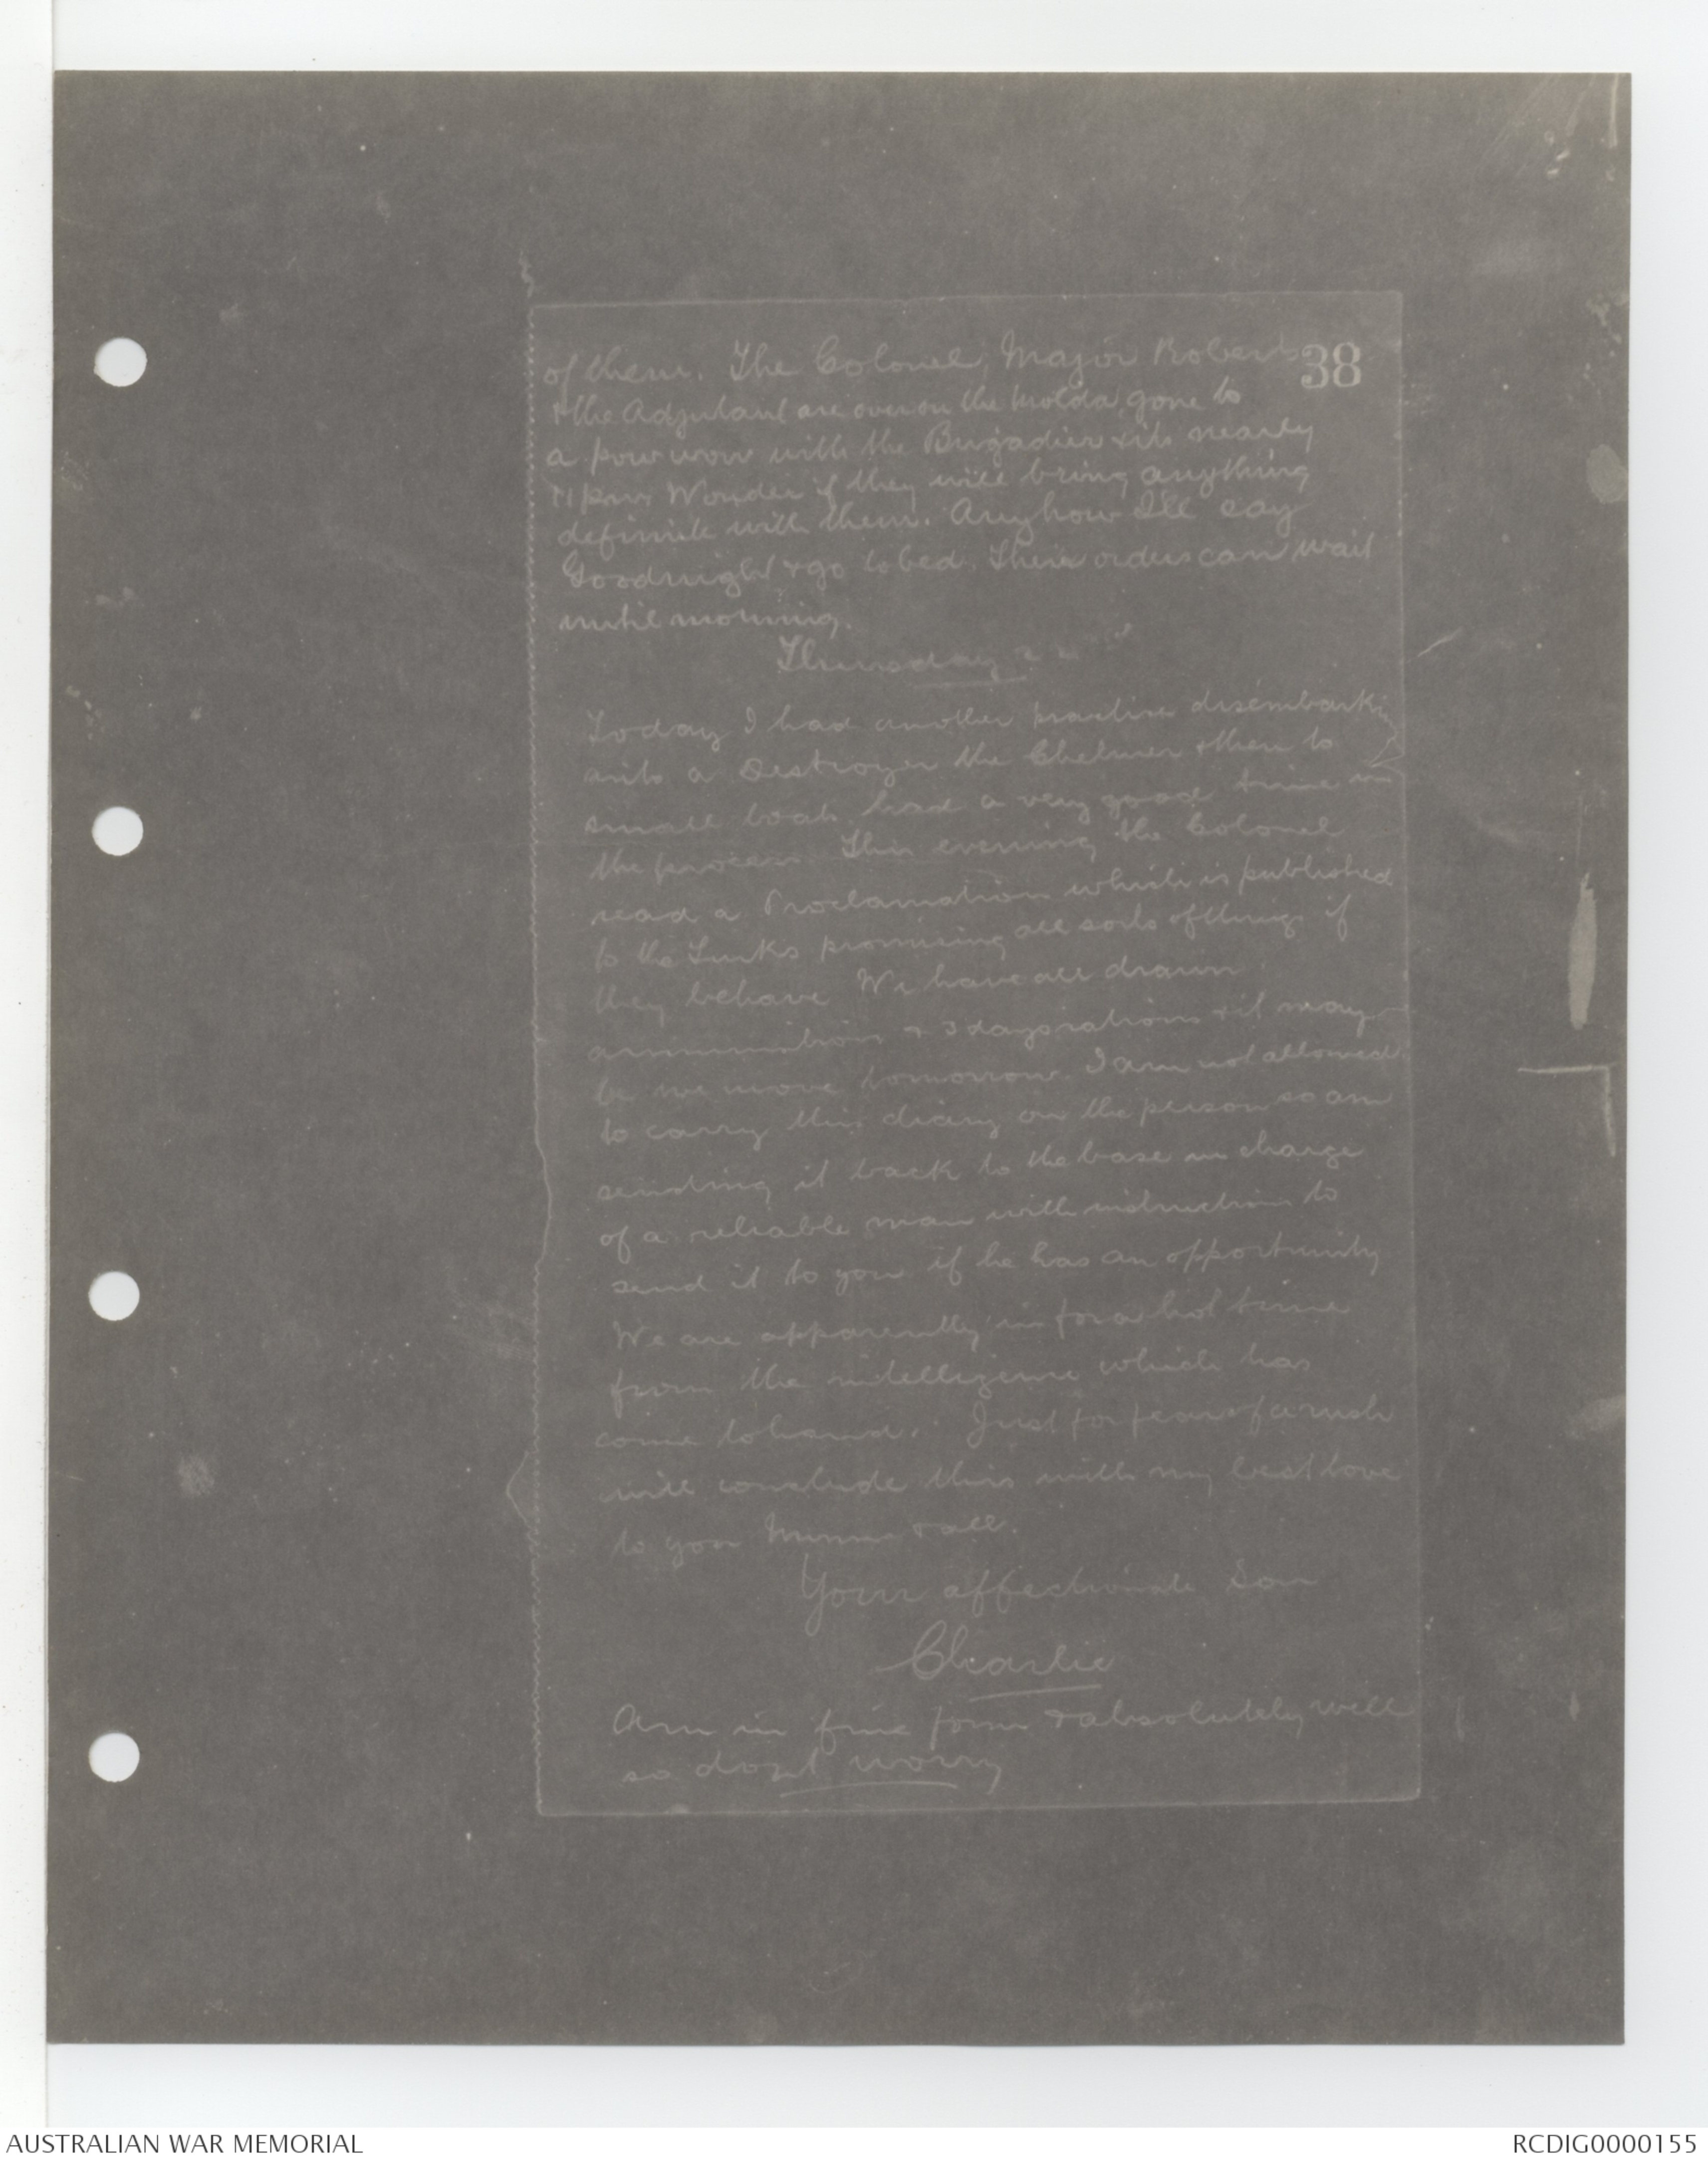 38
of them. The Colonel, Major Roberts
& the Adjutant are over on the Malda, gone to
a pow wow with the Brigadier & its nearly
11 pm. Wonder if they will bring anything
definite with them. Anyhow I'll say
Goodnight & go to bed. Their orders can wait
until morning.
Thursday 22nd
Today I had another practise disembarking
into a Destroyer the Chelmer & then to
small boats had a very good time in
the process. This evening the Colonel
read a Proclamation which is published
to the Turks promising all sorts of things if
they behave We have all drawn
ammunition & 3 days rations & it may
be we move tomorrow. I am not allowed
to carry this diary on the person so am
sending it back to the base in charge
of a reliable man with instruction to
send it to you if he has an opportunity
We are apparently in for a hot time
from the intelligence which has
come to hand. Just for fear of a rush
will conclude this with my best love
to you & all.
Your affectionate Son
Charlie
Am in fine form & absolutely well
so dont worry
AUSTRALIAN WAR MEMORIAL
RCDIG0000155